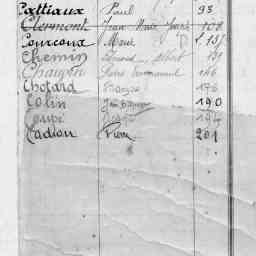 Cattiaux Paul 93
Clermont Jean Marie Joseph 128
Pourcoux Marie 135
Chemin Edmond Albert 139
Chauvin Pierre Emmanuel 146
Chotard François 176
Colin 190
Coupé 194
Cadiou Pierre 201